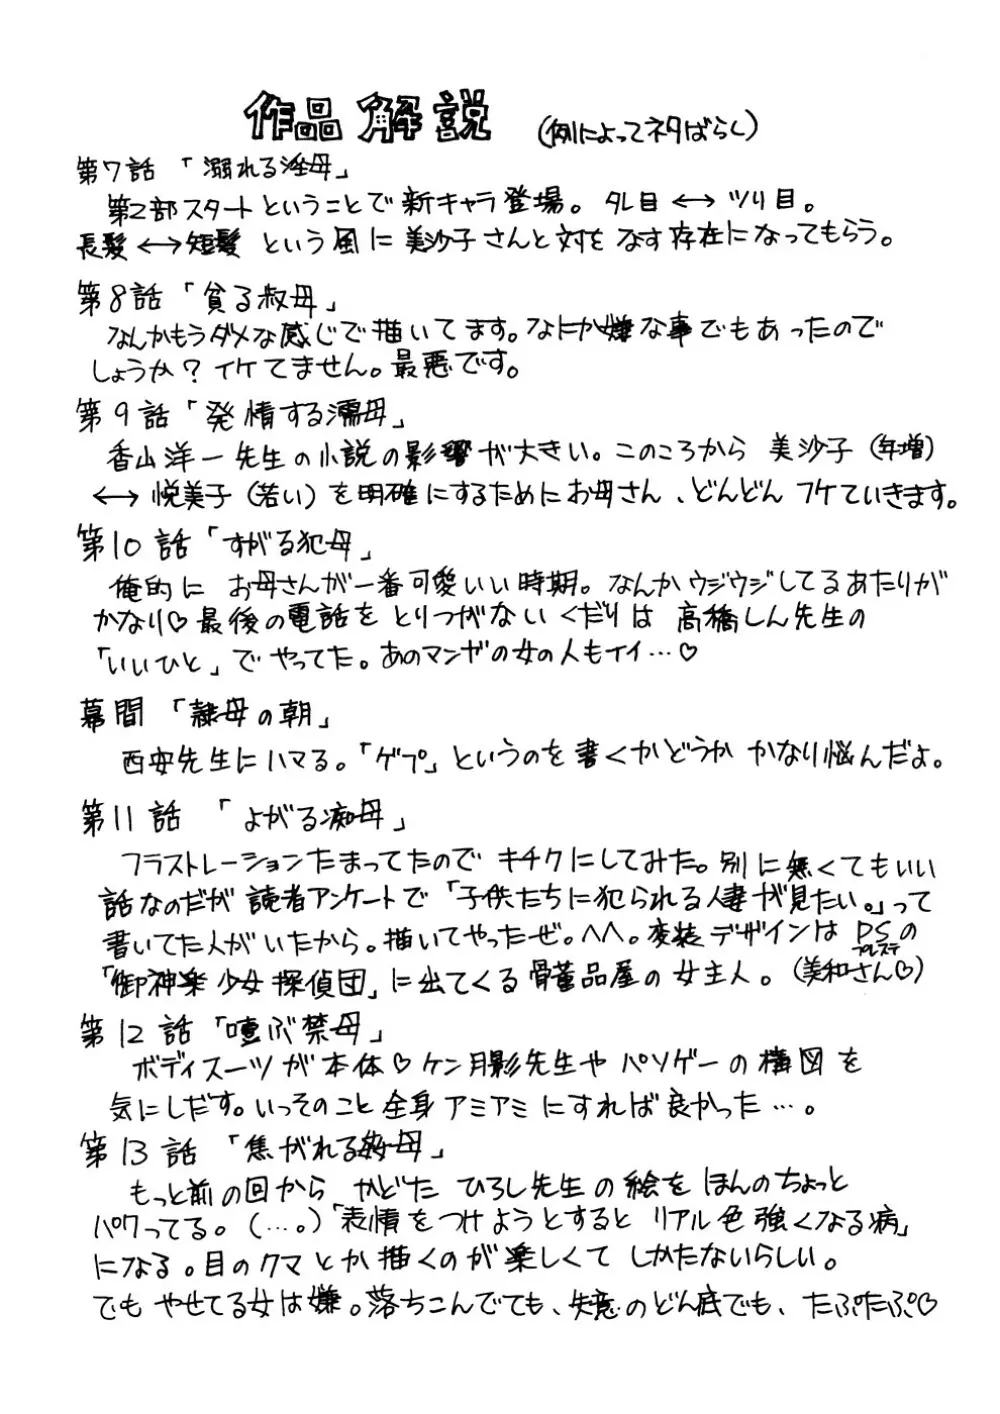 作品解説 (例によってネタばらし)
第7話「溺れる淫母」
第2部スタートということで新キャラ登場。タレ目↔ツリ目。
長髪↔短髪 という風に美沙子さんと対をなす存在になってもらう。
第8話「貪る叔母」
なんかもうダメな感じで描いてます。なにか嫌な事でもあったので
しょうか?イケてません。最悪です。
第9話「発情する濡母」
香山洋一先生の小説の影響が大きい。このころから 美沙子(年増)
↔悦美子(若い)を明確にするためにお母さん、どんどん フケていきます。
第10話「すがる犯母」
俺的に お母さんが一番可愛いい時期。なんかウジウジしてるあたりが
かなり♡最後の電話を とりつがない くだりは 高橋しん先生の
「いいひと」でやってた。あのマンガの女の人もイイ…♡
幕間「隷母の朝」
西安先生にハマる。「ゲプ」というのを書くかどうか かなり悩んだよ。
第11話 「よがる痴母」
フラストレーションたまってたので キチクにしてみた。別に無くてもいい
話なのだが 読者アンケートで「子供たちに犯られる人妻が見たい。」って
書いてた人がいたから。描いてやったぜ。へへ。変装デザインは PSの
プレステ
「御神楽少女探偵団」に出てくる骨董品屋の女主人。(美和さん♡)
第12話「噎ぶ禁母」
ボディスーツが本体♡ケン月影先生や パソゲーの構図を
気にしだす。いっそのこと全身アミアミにすれば良かった…。
第13話「焦がれる姦母」
もっと前の回から かどた ひろし先生の絵を ほんのちょっと
パクってる。(…。)「表情をつけようとすると リアル色強くなる病」
になる。目のクマとか描くのが楽しくて しかたないらしい。
でも やせてる女は嫌。落ちこんでても、失意のどん底でも、たぷたぷ♡